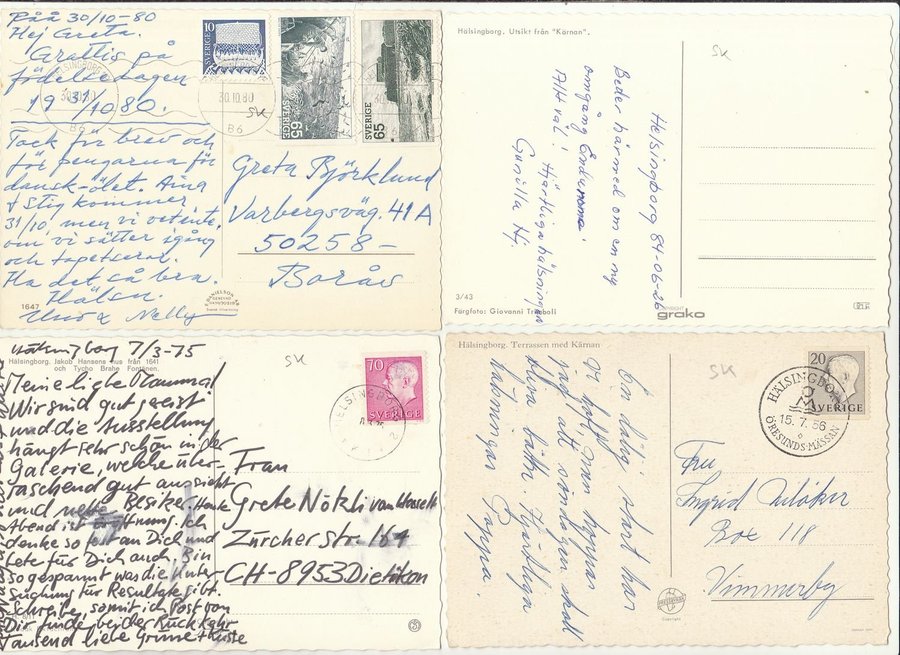 Råå 30/10-80
Hej Greta.
Grattis på
födelsedagen
1931/10 80.
Tack för brev och
för pengarna för
dansk-ölet. Aina
+ Stig kommer
31/10, men vi vet inte,
om vi sätter igång
och tapetserar.
Ha det så bra.
Hälsn.
Nelly
1647
HELSINGBORG
30.10.80
B6
30.10.80
B6
SVERIGE 10
SVERIGE 65
SVERIGE 65
SK
Greta Björklund
Varbergsväg. 41 A
50258 –
Borås
Hälsingborg. Utsikt från "Kärnan".
SK
Helsingborg 84-06-26
Beder härmed om en ny
omgång
Allt väl!
Hjärtliga hälsningar
Gunilla
3/43
Färgfoto: Giovanni Trimboli
grako
7/3-75
Hälsingborg. Jakob Hansens hus från 1641
och Tycho Brahe Fontänen.
Meine liebe Mamma!
Wir sind gut gereist
und die Ausstellung
hängt sehr schön in der
Galerie, welche über-
raschend gut aussieht
und nette Besitzer. Heute
Abend ist Öffnung. Ich
denke so fest an Dich und
bete für Dich auch. Bin
so gespannt was die Unter-
suchung für Resultate gibt.
Schreibe, somit ich Post von
Dir finde bei der Rückkehr
Tausend liebe Grüsse + Küsse
SK
70
SVERIGE
HELSINGBORG
Frau
Grete Nötzli von
Zürcherstr. 164
CH-8953 Dietikon
Hälsingborg. Terrassen med Kärnan
SK
En dålig start har
vi haft, men hoppas
ju att söndagen skall
bliva bättre. Hjärtliga
hälsningar Pappa.
20
SVERIGE
HÄLSINGBORG
15.7.56
ÖRESUNDS-MÄSSAN
Fru
Ingrid
Box 118
Vimmerby